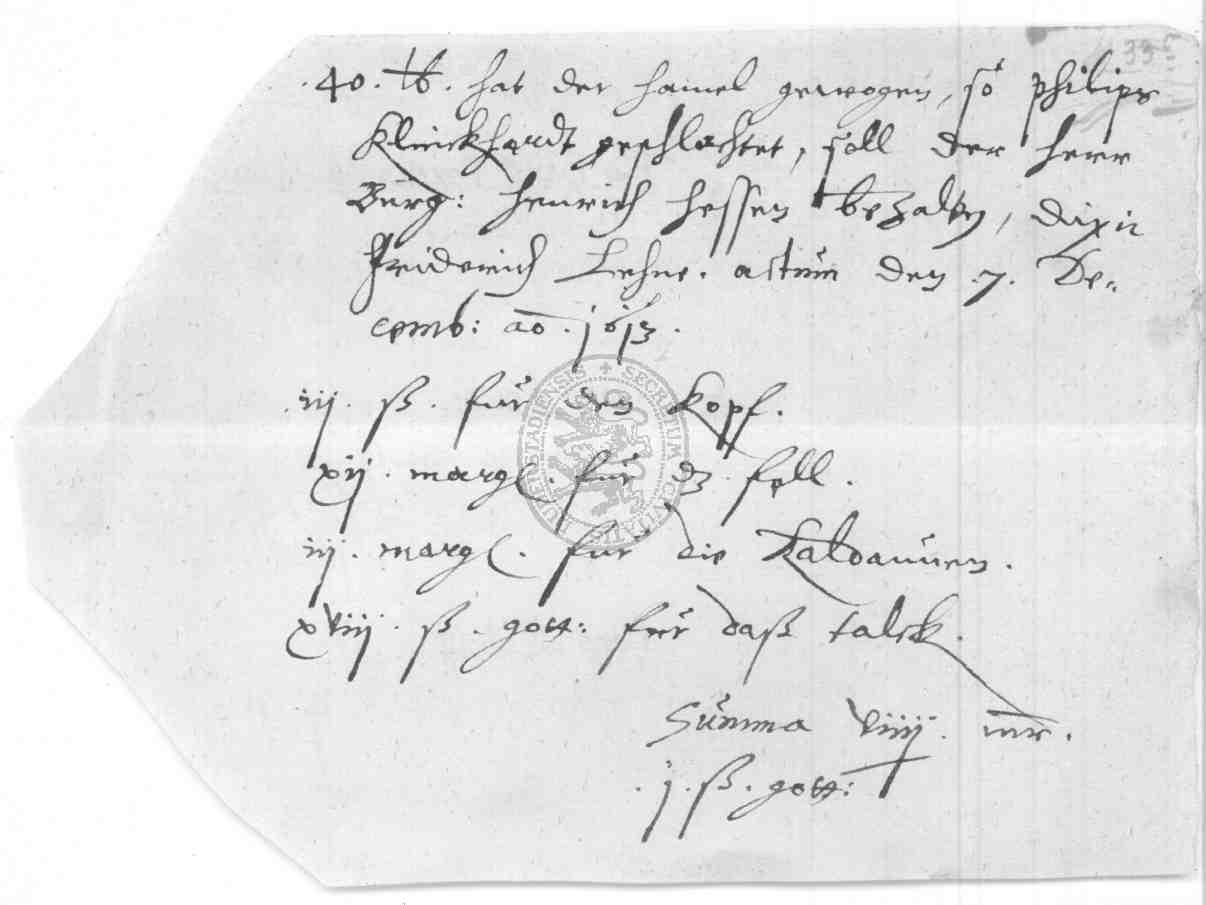 33
.40. ℔. hat der hamel gewogen, so philips
Klinckhardt geschlachtet, soll der herr
Burg: Henrich Hessen bezalen, dixit
Friderich Lehne. actum den .7. De-
cemb: ao. 1613.
iij. ß. für den Kopf.
xij. margl. für dz fell.
iij. margl. für die Kaldaunen.
xviij. ß. gott: für daß talck.
Summa viiij. mr.
.j. ß. gott:
SECRETUM CIVITATIS BUDENSTADIENSIS